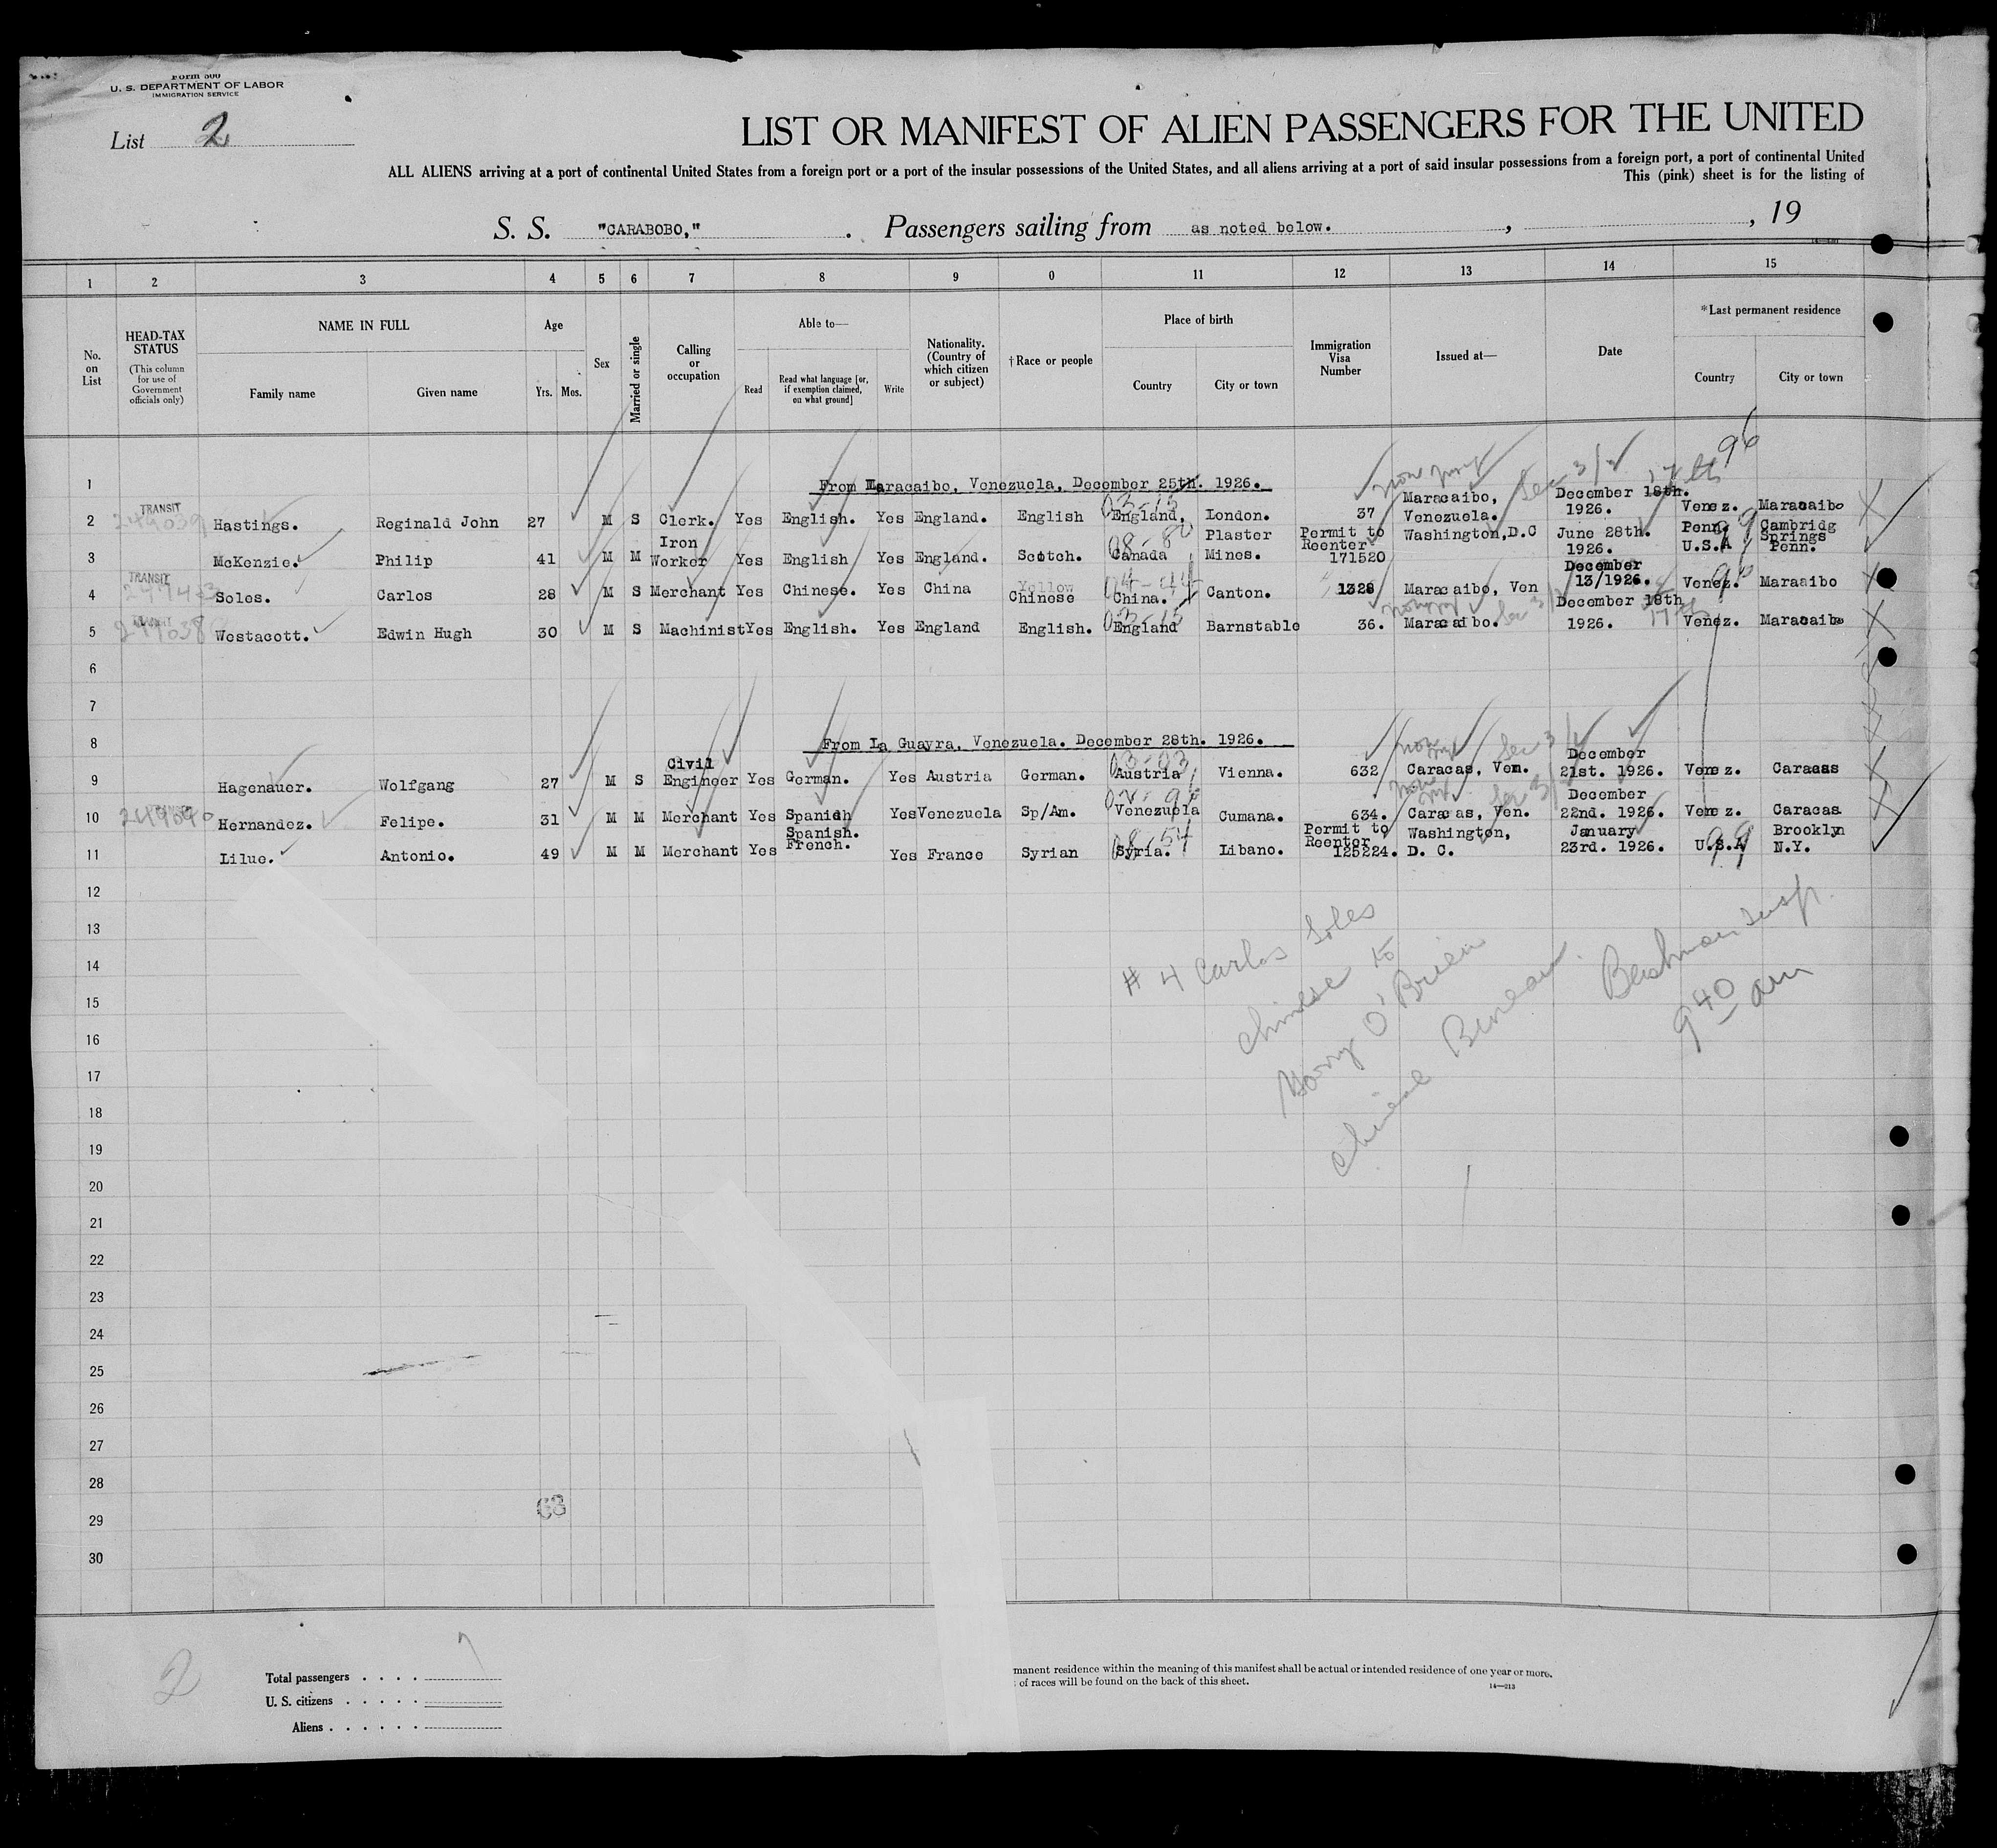 Form 500
U. S. DEPARTMENT OF LABOR
IMMIGRATION SERVICE
List 2
LIST OR MANIFEST OF ALIEN PASSENGERS FOR THE UNITED
ALL ALIENS arriving at a port of continental United States from a foreign port or a port of the insular possessions of the United States, and all aliens arriving at a port of said insular possessions from a foreign port, a port of continental United
This (pink) sheet is for the listing of
S. S. "CARABOBO," . Passengers sailing from as noted below. , , 19
1 2 3 4 5 6 7 8 9 0 11 12 13 14 15
No. on List
HEAD-TAX STATUS (This column for use of Government officials only)
NAME IN FULL
Family name Given name
Age
Yrs. Mos.
Sex
Married or single
Calling or occupation
Able to—
Read Read what language [or, if exemption claimed, on what ground] Write
Nationality. (Country of which citizen or subject)
†Race or people
Place of birth
Country City or town
Immigration Visa Number
Issued at—
Date
*Last permanent residence
Country City or town
96
1 From Maracaibo, Venezuela, December 25th. 1926.
2 TRANSIT 249039 Hastings. Reginald John 27 M S Clerk. Yes English. Yes England. English 03-15 England, London. 37 Maracaibo, Venezuela. Sec 3/2 December 18th. 1926. 17th Venez. Maracaibo
3 McKenzie. Philip 41 M M Iron Worker Yes English Yes England. Scotch. Canada Plaster Mines. Permit to Reenter 171520 Washington,D.C June 28th. 1926. Penn, U.S.A 99 Cambridg Springs Penn.
4 TRANSIT Soles. Carlos 28 M S Merchant Yes Chinese. Yes China Yellow Chinese 04-44 China. Canton. 1328 Maracaibo, Ven December 13/1926. Venez. 96 Maracaibo
5 TRANSIT 249038 Westacott. Edwin Hugh 30 M S Machinist Yes English. Yes England English. 03-15 England Barnstable 36. Maracaibo. Sec 3/2 December 18th 1926. 17th Venez. Maracaibo
6
7
8 From La Guayra, Venezuela. December 28th. 1926.
9 Hagenauer. Wolfgang 27 M S Civil Engineer Yes German. Yes Austria German. 03-03 Austria Vienna. 632 Caracas, Ven. Sec 3/2 December 21st. 1926. Venez. Caracas
10 TRANSIT 249040 Hernandez. Felipe. 31 M M Merchant Yes Spanish Yes Venezuela Sp/Am. Venezuela Cumana. 634. Caracas, Ven. Sec 3/2 December 22nd. 1926. Venez. Caracas
11 Lilue. Antonio. 49 M M Merchant Yes Spanish. French. Yes France Syrian 08-54 Syria. Libano. Permit to Reenter 125224. Washington, D. C. January 23rd. 1926. U.S.A 99 Brooklyn N.Y.
12
13
14
15
16
17
18
19
20
21
22
23
24
25
26
27
28
29
30
# 4 Carlos Soles
Chinese to
Harry O'Brien
Chinese Bureau.
Insp.
9 40 am
68
2
7
Total passengers . . . .
U. S. citizens . . . . .
Aliens . . . . . .
manent residence within the meaning of this manifest shall be actual or intended residence of one year or more.
of races will be found on the back of this sheet.
14—213